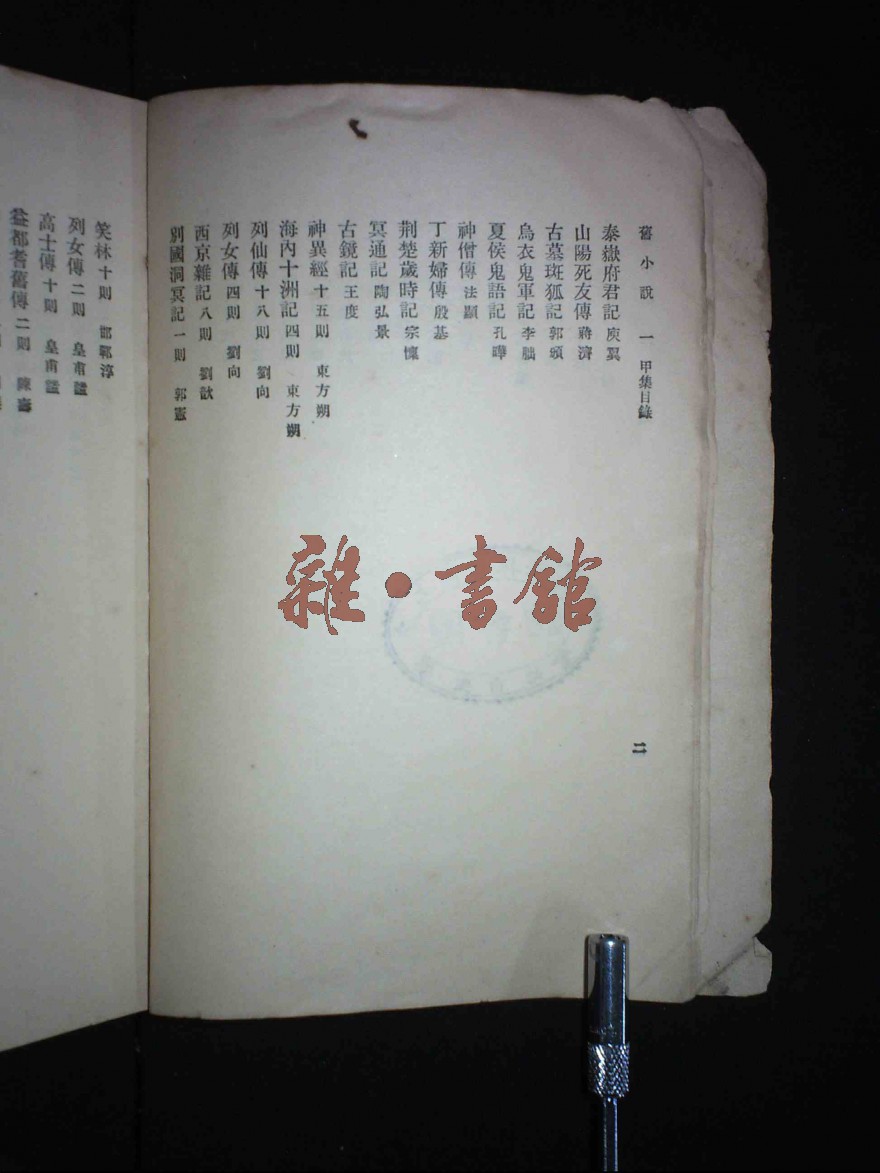 舊小說 一 甲集目錄
泰嶽府君記 庾翼
山陽死友傳 蔣濟
古墓斑狐記 郭頒
烏衣鬼軍記 李朏
夏侯鬼語記 孔曄
神僧傳 法顯
丁新婦傳 殷基
荆楚歲時記 宗懔
冥通記 陶弘景
古鏡記 王度
神異經十五則 東方朔
海內十洲記四則 東方朔
列仙傳十八則 劉向
列女傳四則 劉向
西京雜記八則 劉歆
別國洞冥記一則 郭憲
二
笑林十則 邯鄲淳
列女傳二則 皇甫謐
高士傳十則 皇甫謐
益都耆舊傳二則 陳壽
雜·書館